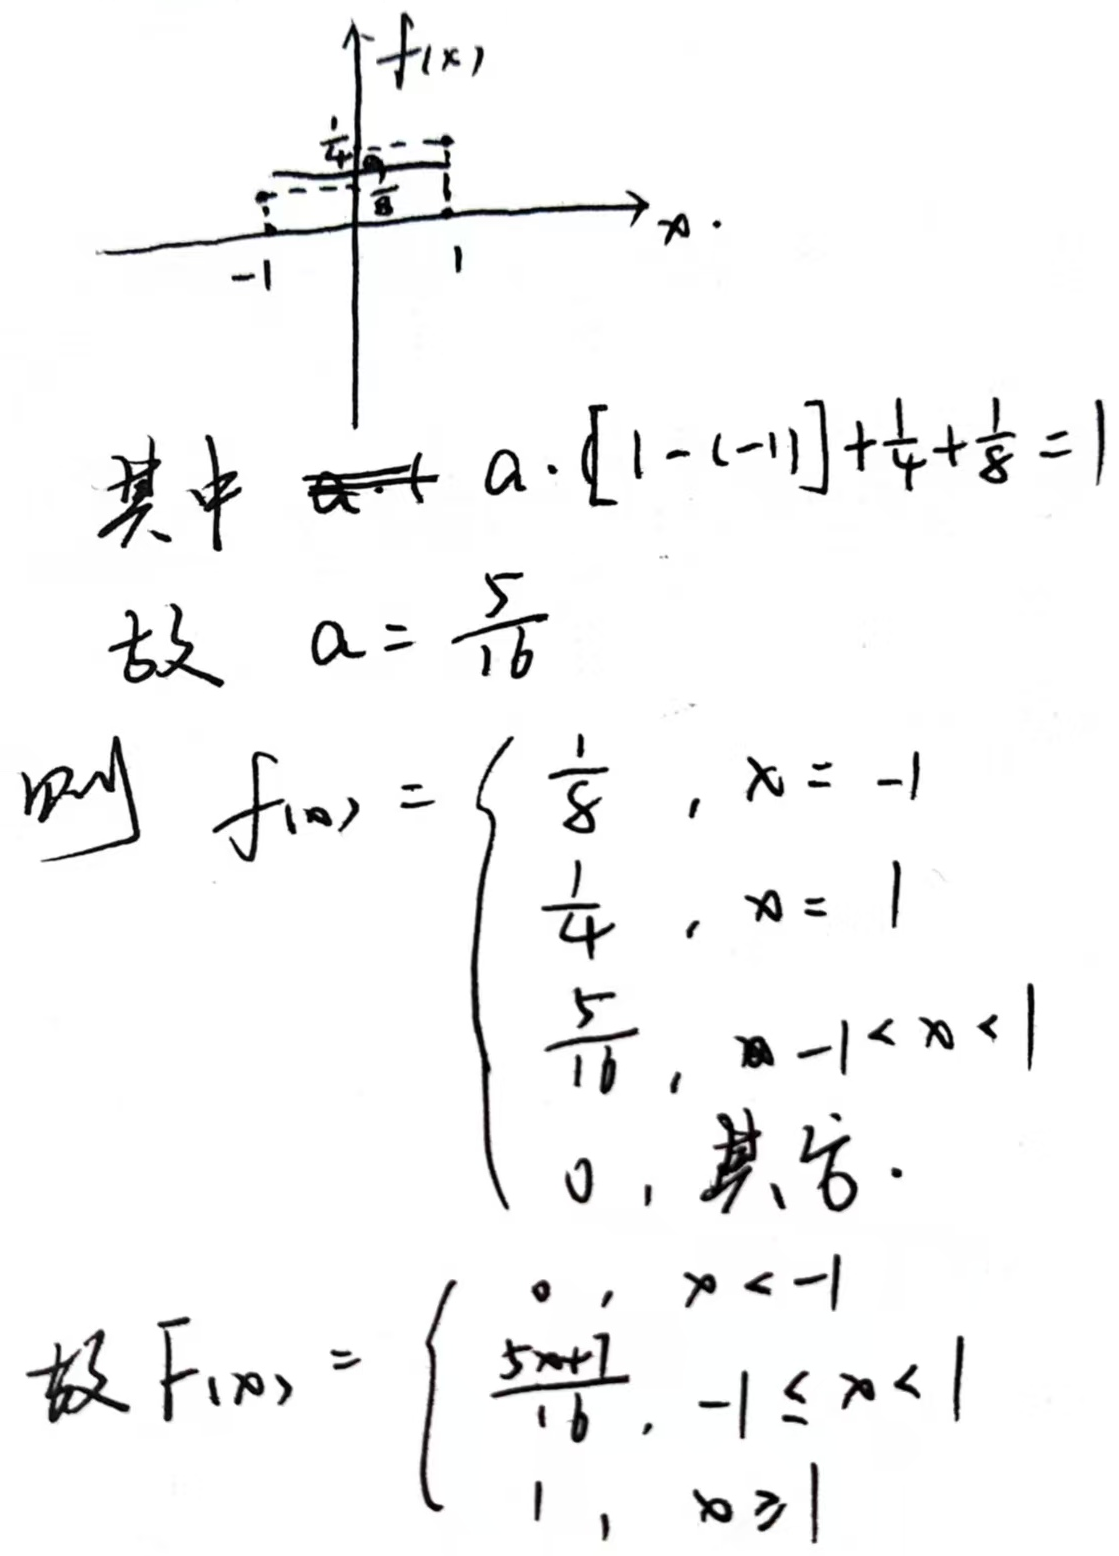 f(x)
1/4
a
1/8
x.
-1 1
其中 a·[1-(-1)]+1/4+1/8=1
故 a=5/16
则 f(x)={ 1/8 , x=-1
1/4 , x=1
5/16 , -1<x<1
0 , 其它.
故 F(x)={ 0 , x<-1
(5x+7)/16 , -1≤x<1
1 , x≥1